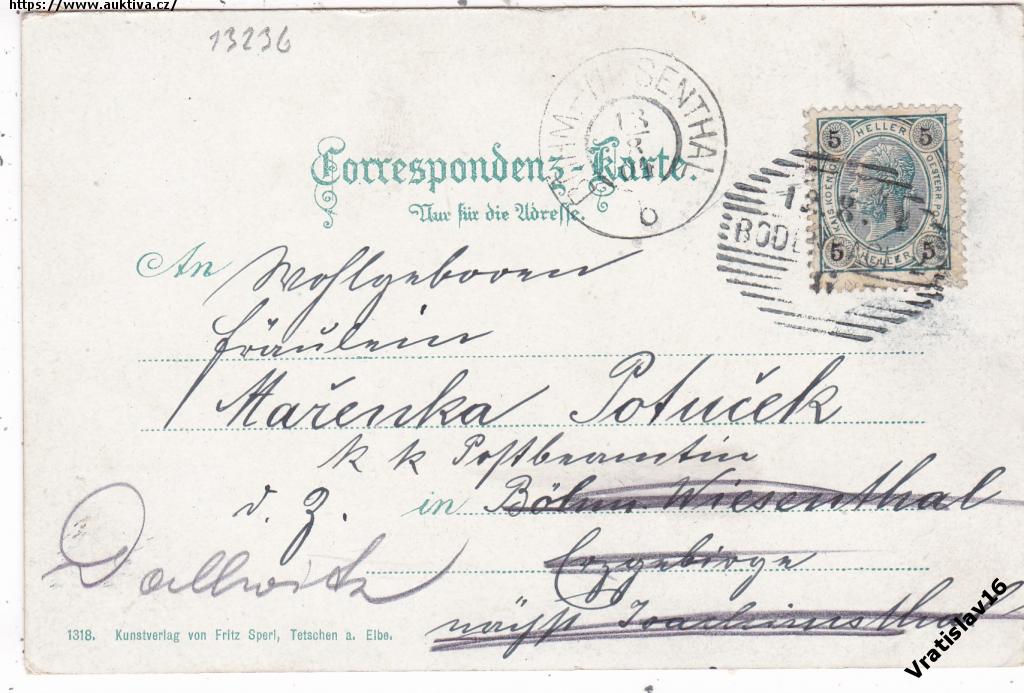 https://www.auktiva.cz/
13236
BÖHM.-WIESENTHAL
13
8
6
Correspondenz-Karte.
Nur für die Adresse.
5 HELLER 5
KAIS. KOEN.
OESTERR. POST
5 HELLER 5
13. 8.
BODE
An Wohlgeboren
Fräulein
Mařenka Potuček
k k Postbeamtin
d. Z. in Böhm Wiesenthal
Erzgebirge
Dallwitz
nächst Joachimsthal
1318. Kunstverlag von Fritz Sperl, Tetschen a. Elbe.
Vratislav16